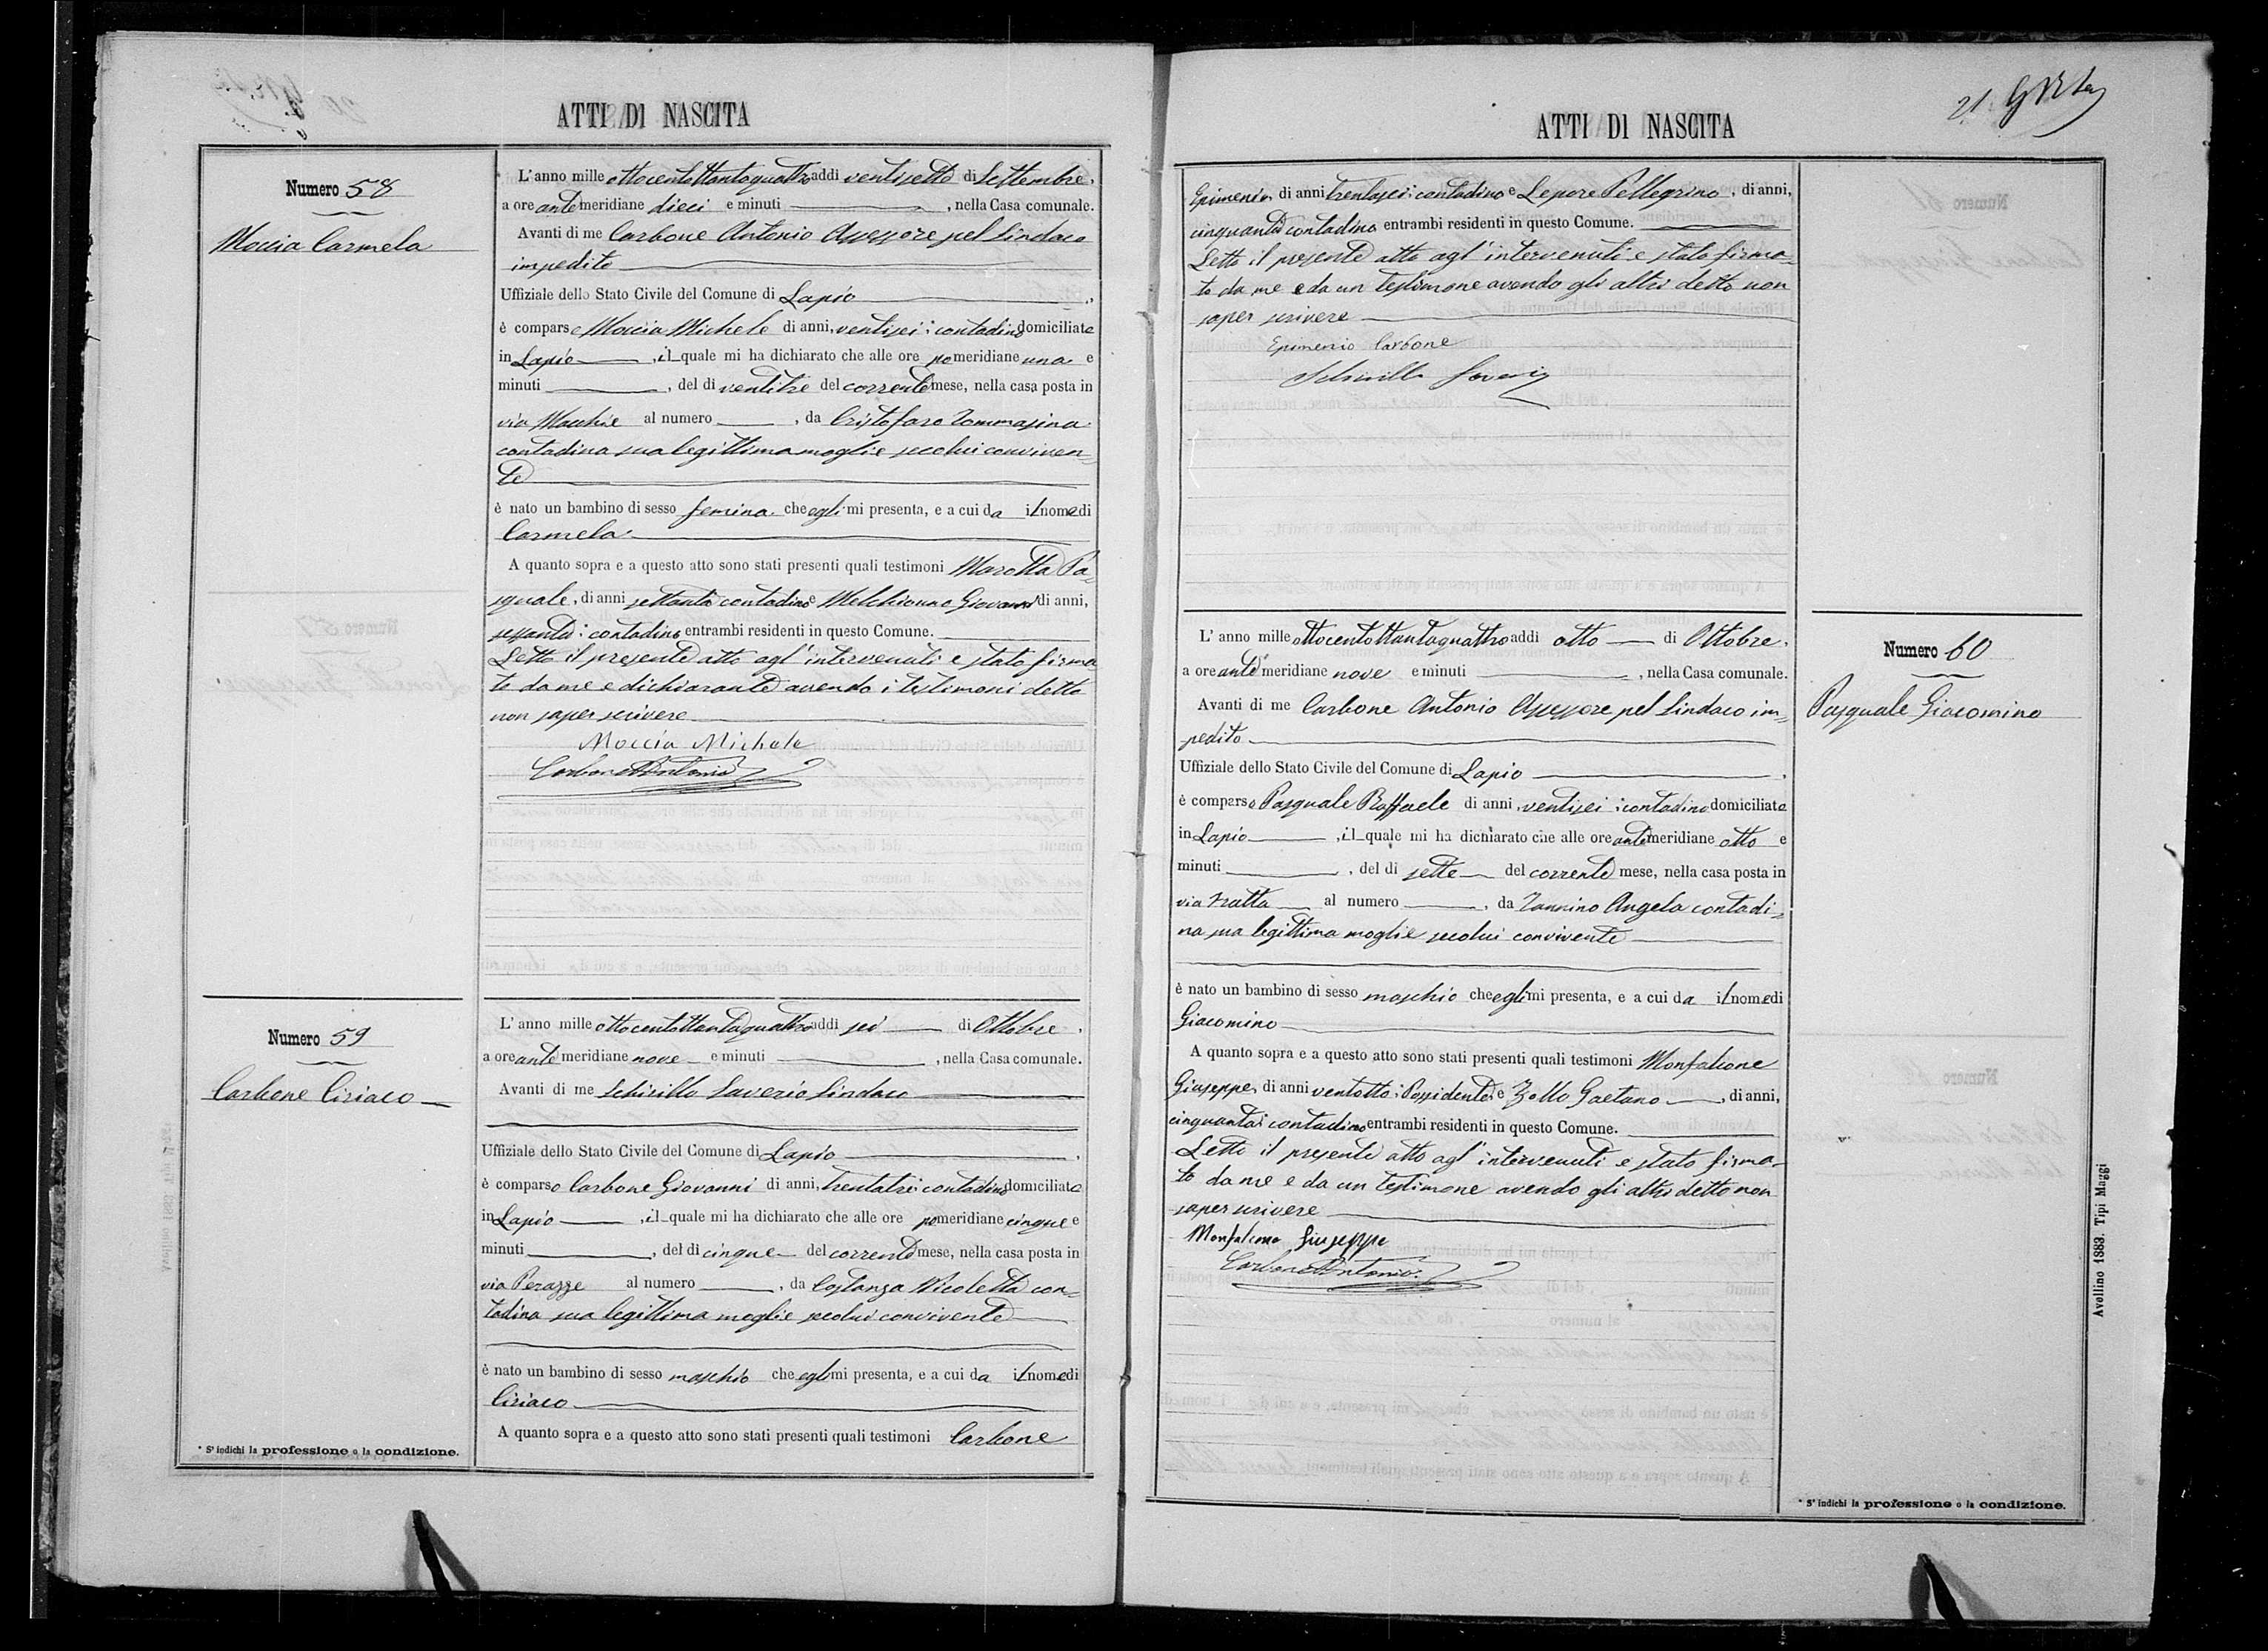 ATTI DI NASCITA
Numero 58
Moccia Carmela
L'anno mille ottocentottantaquattro addì ventisette di Settembre,
a ore antemeridiane dieci e minuti , nella Casa comunale.
Avanti di me Carbone Antonio Assessore pel Sindaco
impedito
Uffiziale dello Stato Civile del Comune di Lapio ,
è comparso Moccia Michele di anni, ventisei; contadino domiciliato
in Lapio , il quale mi ha dichiarato che alle ore pomeridiane una e
minuti , del dì ventitre del corrente mese, nella casa posta in
via Macchie al numero , da Cristofaro Tommasina
contadina sua legittima moglie secolui conviven=
te
è nato un bambino di sesso femina che egli mi presenta, e a cui da il nome di
Carmela
A quanto sopra e a questo atto sono stati presenti quali testimoni Marotta Pa=
squale, di anni settanta contadino e Melchionno Giovanni di anni,
sessanta; contadino entrambi residenti in questo Comune.
Letto il presente atto agl'intervenuti e stato firma
to da me e dichiarante avendo i testimoni detto
non saper scrivere
Moccia Michele
Carbone Antonio
Numero 59
Carbone Ciriaco
L'anno mille ottocentottantaquattro addì sei di Ottobre,
a ore antemeridiane nove e minuti , nella Casa comunale.
Avanti di me Schirillo Saverio Sindaco
Uffiziale dello Stato Civile del Comune di Lapio ,
è comparso Carbone Giovanni di anni, trentatre; contadino domiciliato
in Lapio , il quale mi ha dichiarato che alle ore pomeridiane cinque e
minuti , del dì cinque del corrente mese, nella casa posta in
via Perazze al numero , da Costanza Nicoletta con=
tadina sua legittima moglie secolui convivente
è nato un bambino di sesso maschio che egli mi presenta, e a cui da il nome di
Ciriaco
A quanto sopra e a questo atto sono stati presenti quali testimoni Carbone
* S'indichi la professione o la condizione.
ATTI DI NASCITA
21
Epimenio, di anni trentasei; contadino e Lepore Pellegrino, di anni,
cinquanta contadino entrambi residenti in questo Comune.
Letto il presente atto agl'intervenuti e stato firma=
to da me e da un testimone avendo gli altri detto non
saper scrivere
Epimenio Carbone
Schirillo Saverio
Numero 60
Pasquale Giacomino
L'anno mille ottocentottantaquattro addì otto di Ottobre,
a ore antemeridiane nove e minuti , nella Casa comunale.
Avanti di me Carbone Antonio Assessore pel Sindaco im=
pedito
Uffiziale dello Stato Civile del Comune di Lapio ,
è comparso Pasquale Raffaele di anni, ventisei; contadino domiciliato
in Lapio , il quale mi ha dichiarato che alle ore antimeridiane otto e
minuti , del dì sette del corrente mese, nella casa posta in
via Fratta al numero , da Iannino Angela contadi=
na sua legittima moglie secolui convivente
è nato un bambino di sesso maschio che egli mi presenta, e a cui da il nome di
Giacomino
A quanto sopra e a questo atto sono stati presenti quali testimoni Monfalcone
Giuseppe, di anni ventotto; Possidente, e Zollo Gaetano , di anni,
cinquanta; contadino entrambi residenti in questo Comune.
Letto il presente atto agl'intervenuti e stato firma=
to da me e da un testimone avendo gli altri detto non
saper scrivere
Monfalcone Giuseppe
Carbone Antonio
* S'indichi la professione o la condizione.
Avellino 1883. Tipi Maggi